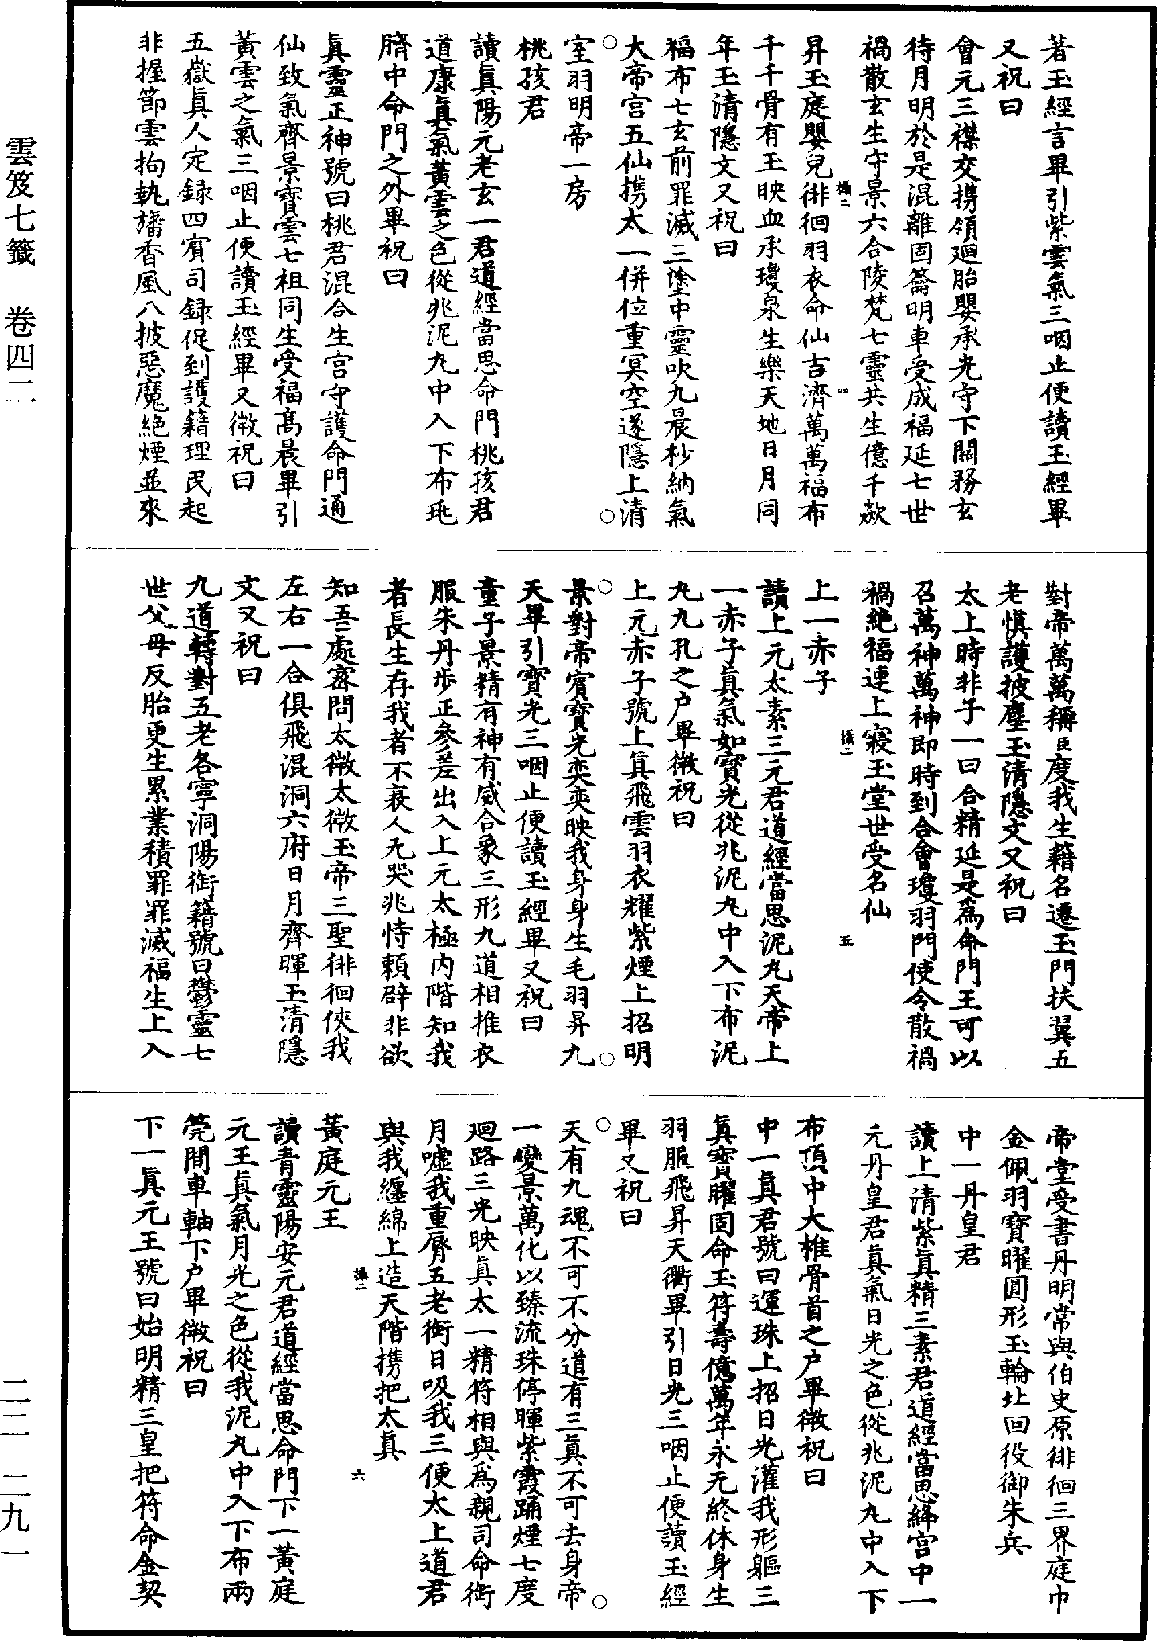 雲笈七籤　卷四二
二二—二九一
著玉經言畢引紫雲氣三咽止便讀玉經畢
又祝曰
會元三襟交攜領廻胎嬰承光守下關務玄
待月明於是混離固籥明車受成福延七世
禍散玄生守景六合陵梵七靈共生億千欻
昇玉庭嬰兒徘徊羽衣命仙吉濟萬萬福布
千千骨有玉映血承瓊泉生樂天地日月同
年玉清隱文又祝曰
福布七玄前罪滅三塗中靈吹九晨杪納氣
大帝宮五仙攜太一併位重冥空遂隱上清
室羽明帝一房
桃孩君
讀真陽元老玄一君道經當思命門桃孩君
道康真氣黃雲之色從兆泥丸中入下布玼
臍中命門之外畢祝曰
真靈正神號曰桃君混合生宮守護命門通
仙致氣齊景寶雲七祖同生受福高晨畢引
黃雲之氣三咽止便讀玉經畢又微祝曰
五嶽真人定錄四賓司錄促到護籍理民起
非握節雲拘執旛香風八披惡魔絕煙並來
對帝萬萬稱臣度我生籍名遷玉門扶翼五
老慎護披塵玉清隱文又祝曰
太上時非子一曰合精延是為命門王可以
召萬神萬神即時到合會瓊羽門使令散禍
禍絕福連上寢玉堂世受名仙
上一赤子
讀上元太素三元君道經當思泥丸天帝上
一赤子真氣如寶光從兆泥丸中入下布泥
丸九孔之户畢微祝曰
上元赤子號上真飛雲羽衣耀紫煙上招明
景對帝賓寶光奕奕映我身身生毛羽昇九
天畢引寶光三咽止便讀玉經畢又祝曰
童子景精有神有威合象三形九道相推衣
服朱丹步正參差出入上元太極內階知我
者長生存我者不衰人无哭兆恃賴辟非欲
知吾處密問太微太微玉帝三聖徘徊俠我
左右一合俱飛混洞六府日月齊暉玉清隱
文又祝曰
九道轉對五老各寧洞陽銜籍號曰鬱靈七
世父母反胎更生累業積罪罪滅福生上入
帝堂受書丹明常與伯史原徘徊三界庭巾
金佩羽寶曜圓形玉輪北回役御朱兵
中一丹皇君
讀上清紫真精三素君道經當思絳宮中一
元丹皇君真氣日光之色從兆泥丸中入下
布頂中大椎骨首之户畢微祝曰
中一真君號曰運珠上招日光灌我形軀三
真寶曜固命玉符壽億萬年永无終休身生
羽服飛昇天衢畢引日光三咽止便讀玉經
畢又祝曰
天有九魂不可不分道有三真不可去身帝
一變景萬化以臻流珠停暉紫霞踊煙七度
廻路三光映真太一精符相與為親司命銜
月噓我重脣五老銜日吸我三便太上道君
與我纏綿上造天階攜把太真
黃庭元王
讀青靈陽安元君道經當思命門下一黃庭
元王真氣月光之色從我泥丸中入下布兩
筦間車軸下户畢微祝曰
下一真元王號曰始明精三皇把符命金契